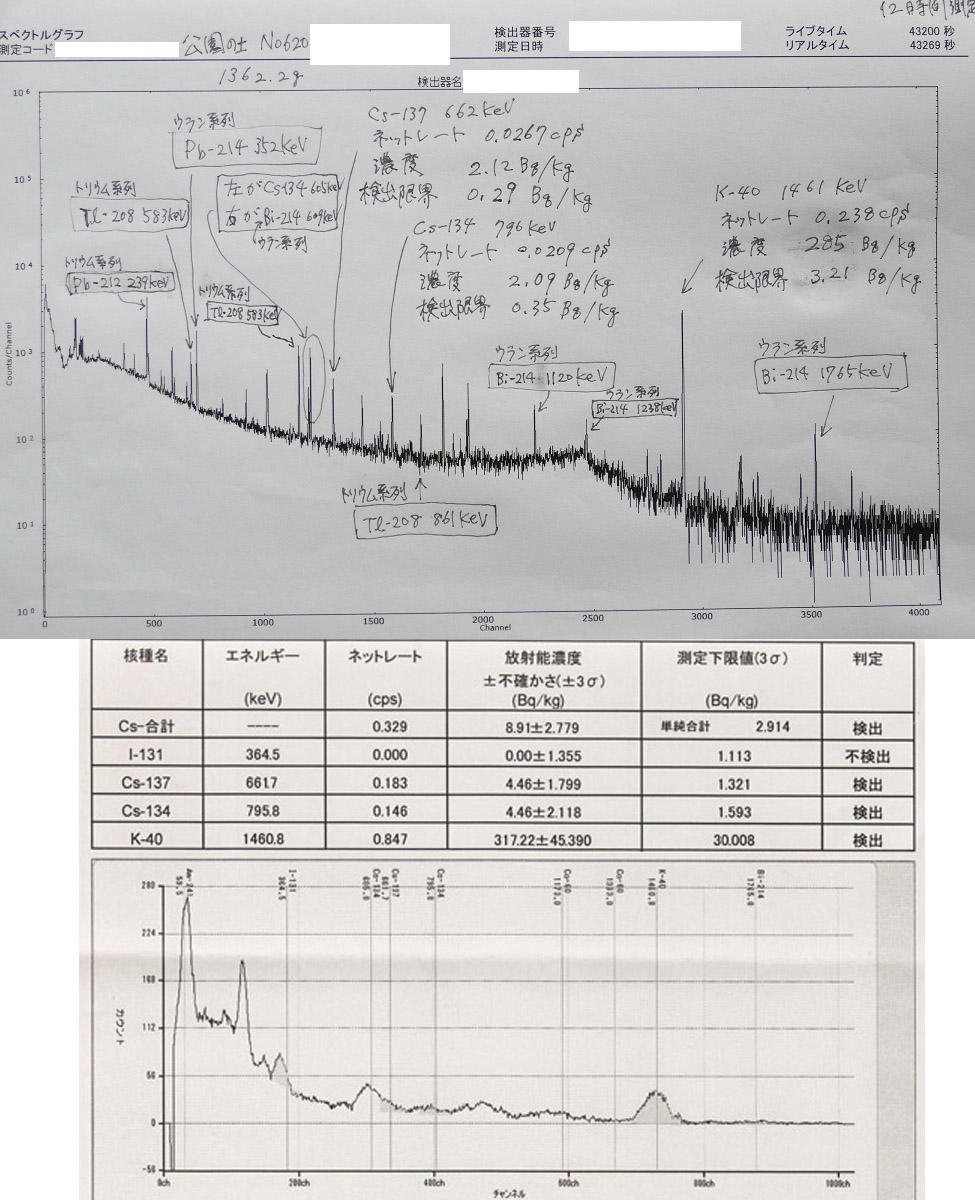 12時間測定
スペクトルグラフ
測定コード
公園の土 No620
1362.2g
検出器番号
測定日時
ライブタイム 43200 秒
リアルタイム 43269 秒
検出器名
10⁶
10⁵
10⁴
10³
10²
10¹
10⁰
Counts/Channel
ウラン系列
Pb-214 352KeV
トリウム系列
Tl-208 583KeV
トリウム系列
Pb-212 239KeV
左がCs134 605KeV
右がBi-214 609KeV
ウラン系列
トリウム系列
Tl-208 583KeV
Cs-137 662KeV
ネットレート 0.0267cps
濃度 2.12Bq/Kg
検出限界 0.29 Bq/Kg
Cs-134 796KeV
ネットレート 0.0209cps
濃度 2.09Bq/Kg
検出限界 0.35 Bq/Kg
K-40 1461 KeV
ネットレート 0.238cps
濃度 285 Bq/Kg
検出限界 3.21 Bq/Kg
ウラン系列
Bi-214 1120KeV
ウラン系列
Bi-214 1238KeV
ウラン系列
Bi-214 1765KeV
トリウム系列
Tl-208 861KeV
0 500 1000 1500 2000 2500 3000 3500 4000
Channel
核種名 エネルギー (keV) ネットレート (cps) 放射能濃度 ±不確かさ(±3σ) (Bq/kg) 測定下限値(3σ) (Bq/kg) 判定
Cs-合計 ---- 0.329 8.91±2.779 単純合計 2.914 検出
I-131 364.5 0.000 0.00±1.355 1.113 不検出
Cs-137 661.7 0.183 4.46±1.799 1.321 検出
Cs-134 795.8 0.146 4.46±2.118 1.593 検出
K-40 1460.8 0.847 317.22±45.390 30.008 検出
Am-241 59.5
I-131 364.5
Cs-134 605.0
Cs-137 661.7
Cs-134 795.8
Co-60 1173.0
Co-60 1333.0
K-40 1460.8
Bi-214 1765.0
280
224
168
112
56
0
-56
カウント
0ch 200ch 400ch 600ch 800ch 1000ch
チャンネル